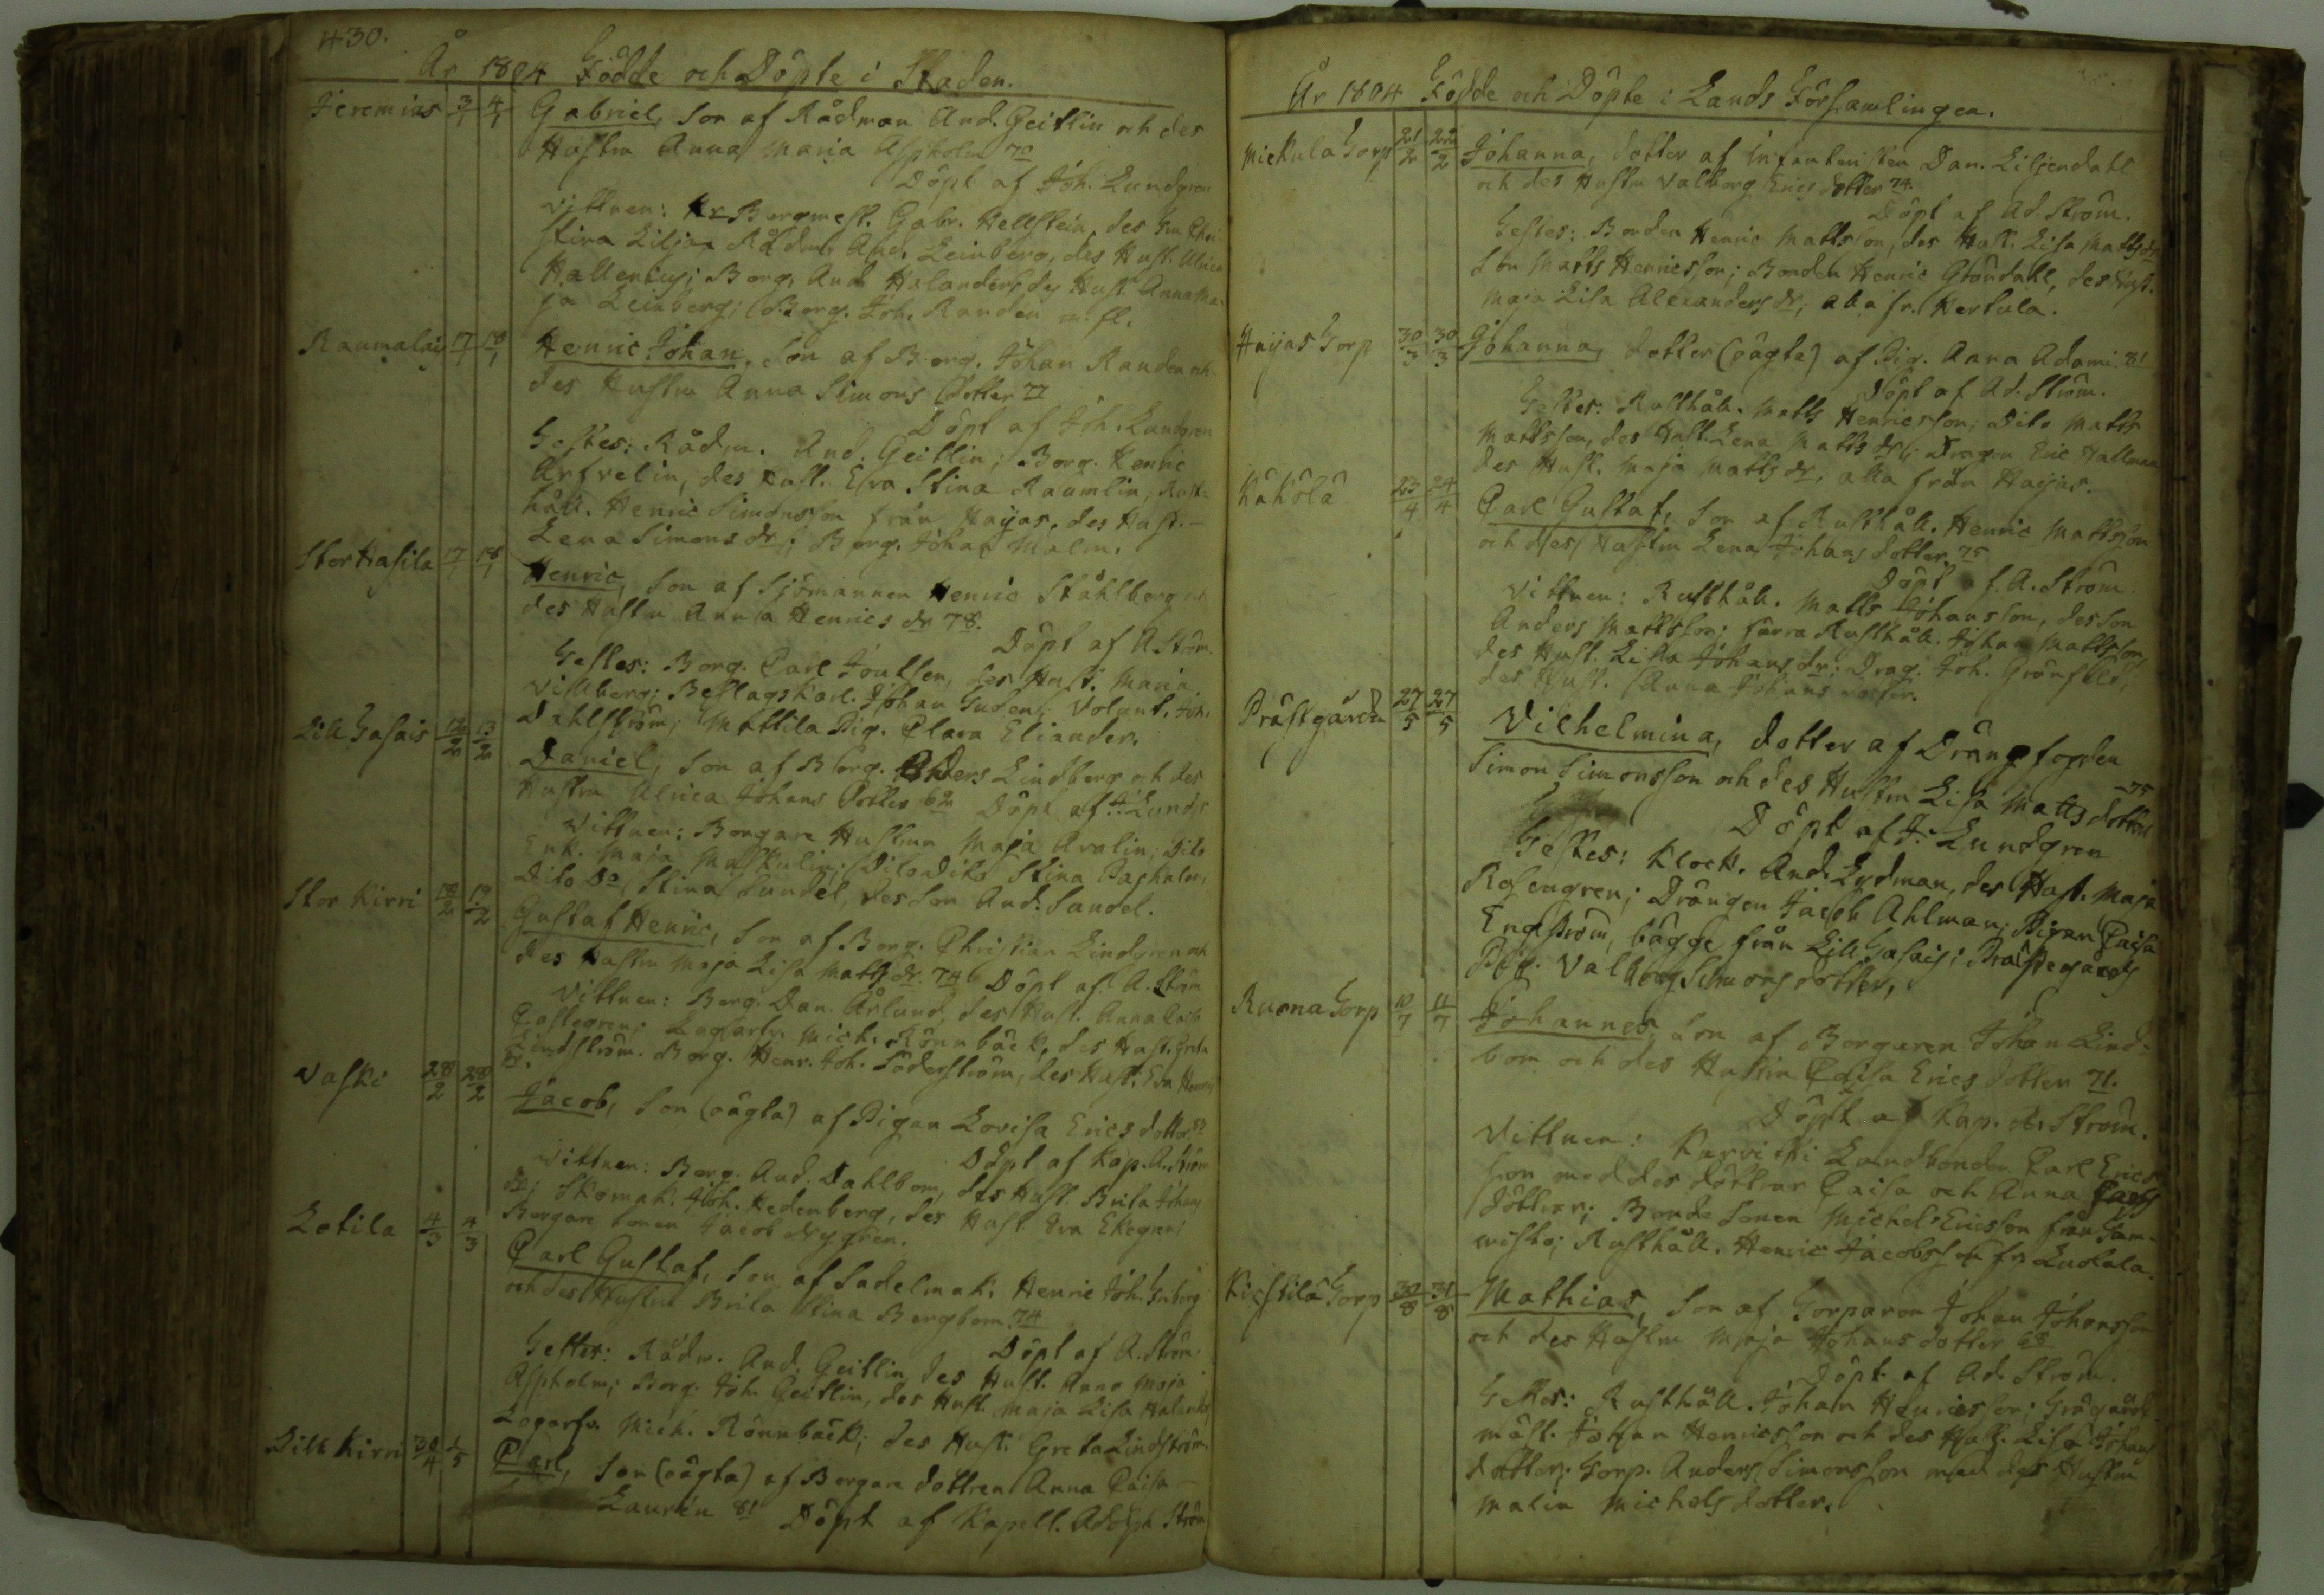 430.
År 1804 Födde och Döpte i Staden.
Jeremias 3/1 4/1 Gabriel, Son af Rådman And. Geitlin och des
Hustru Anna Maria Aspholm 70
Döpt af Joh. Lundgren
Vittnen: Hr Bergmest. Gabr. Hellstein, des Fru Chri-
stina Lilja, Rådm. And. Leinberg, des Hust. Ulrica
Hallenius; Borg. And. Halander, des Hust. Anna Ma-
ja Leinberg; Borg. Joh. Randen m. fl.
Raumalais 17/1 18/1 Henric Johan, Son af Borg. Johan Randen och
des Hustru Anna Simons dotter 77
Döpt af Joh. Lundgren
Testes: Rådm. And. Geitlin; Borg. Henric
Arfvelin, des Hust. Eva Stina Raumlin, Rust-
håll. Henric Simonsson från Hayas, des Hust.
Lena Simons dr; Borg. Johan Malm.
Stor Hasila 17/1 18/1 Henric, Son af Sjömannen Henric Ståhlberg och
des Hustru Anna Henrics dr 78.
Döpt af A. Ström.
Testes: Borg. Carl Joutsen, des Hust. Maria
Villberg; Beslagskarl. Johan Gudens; Volunt. Joh.
Dahlström; Mattila Pig. Clara Eliander.
Lill Hasais 12/2 13/2 Daniel, Son af Borg. Anders Lindberg och des
Hustru Ulrica Johans dotter 62 Döpt af J. Lundgr.
Vittnen: Borgare Hustrun Maja Avalin; Dito
Enk. Maja Maskulin; Dito Dito Stina
Dito Do Stina Sundel, des Son And. Sandel.
Stor Kirri 18/2 19/2 Gustaf Henric, Son af Borg. Christian Lindgren och
des Hustru Maja Lisa Matts dr. 74 Döpt af A. Ström
Vittnen: Borg. Dan. Årlund, des Hust. Anna Caisa
Mich. Rönnbäck, des Hust. Greta
Lindström. Borg. Henr. Joh. Söderström, des Hust. Eva Henrics
dr.
Vaski 28/2 28/2 Jacob, Son (oägta) af Pigan Lovisa Ericsdotter 83
Döpt af Kap. A. Ström
Vittnen: Borg. And. Dahlbom, des Hust. Brita Johans
dr; Skomak. Joh. Hedenberg, des Hust Eva Ekegren;
Borgare Sonen Jacob Nygren.
Lotila 4/3 4/3 Carl Gustaf, Son af Sadelmak. Henric Joh.
och des Hustru Brita Stina Bergbom. 74
Döpt af A. Ström.
Testes: Rådm. And. Geitlin, des Hust. Anna Maja
Aspholm; Borg. Joh. Geitlin, des Hust Maja Lisa Halander
Mich. Rönnbäck, des Hust. Greta Lindström.
Lill Kirri 30/4 1/5 Carl, Son (oägta) af Borgare dottren Anna Caisa
Laurén 81 Döpt af Kapell. Adolph Ström
År 1804 Födde och Döpte i Lands Församlingen.
Mickula Torp 21/2 22/2 Johanna, dotter af Infanteristen Dan. Liljendahl
och des Hustru Valborg Ericsdotter 74.
Döpt af Ad. Ström.
Testes: Bonden Henric Mattsson, des Hust. Lisa Mattsdr
Son Matts Henricsson; Bonden Henric Gröndahl, des Hust.
Maja Lisa Alexandersdr, alla fr. Hertula.
Hayas Torp 30/3 30/3 Johanna, dotter (oägta) af Pig. Anna Adami 81
Döpt af Ad. Ström.
Testes: Rusthåll. Matts Henricsson; Dito Matts
Mattsson, des Hust. Lena Matts dr; Dragon Eric Hallman
des Hust. Maja Matts dr, alla från Hayas.
Kåkola 23/4 24/4 Carl Gustaf, Son af Rusthåll. Henric Mattsson
och des Hustru Lena Johans dotter 75
Döpt af A. Ström.
Vittnen: Rusthåll. Matts Johansson, des Son
Anders Mattsson; förra Rusthåll. Johan Mattsson,
des Hust. Lisa Johans dr; Drag. Joh. Grönfelt;
des Hust. Anna Johans dotter.
Prästgården 27/5 27/5 Vilhelmina, dotter af Drängfogden
Simon Simonsson och des Hustru Lisa Matts dotter 75
Döpt af J. Lundgren
Testes: Klock. And. Lydman, des Hust. Maja
Rosengren; Drängen Jacob Ahlman; Pigan Caisa
Engström, bägge från Lill Hasais; Prästegårds
Pig. Valborg Simonsdotter,
Ruona Torp 10/7 11/7 Johannes, Son af Borgaren Johan Lind-
bom och des Hustru Caisa Ericsdotter 71.
Döpt af Kap. A. Ström.
Vittnen: Karviski Landbonden Carl Erics
son med des döttrar Caisa och Anna Carls
döttrar; Bonde Sonen Michel Ericsson från Tam-
misto; Rusthåll. Henric Jacobsson fr. Lukkala.
Kiestilä Torp 30/8 31/8 Mathias, Son af Torparen Johan Johansson
och des Hustru Maja Johansdotter 68
Döpt af Ad. Ström.
Testes: Rusthåll. Johan Henricsson; Trägårds
mäst. Johan Henricsson och des Hust. Lisa Johans
dotter; Torp. Anders Simonsson med des Hustru
Malin Michels dotter.